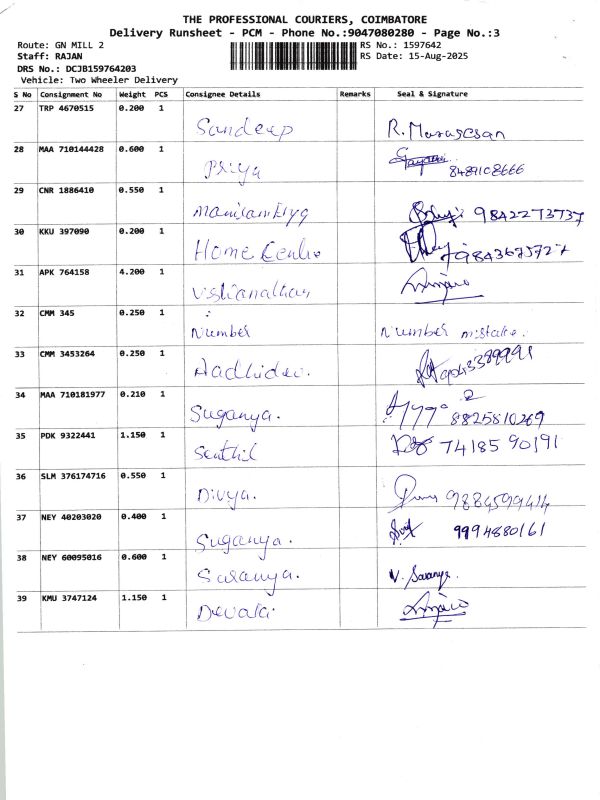 THE PROFESSIONAL COURIERS, COIMBATORE
Delivery Runsheet - PCM - Phone No.:9047080280 - Page No.:3
Route: GN MILL 2 RS No.: 1597642
Staff: RAJAN RS Date: 15-Aug-2025
DRS No.: DCJB159764203
Vehicle: Two Wheeler Delivery
S No Consignment No Weight PCS Consignee Details Remarks Seal & Signature
27 TRP 4670515 0.200 1 Sandeep R. Murugesan
28 MAA 710144428 0.600 1 Priya 8489108666
29 CNR 1886410 0.550 1 9842273737
30 KKU 397090 0.200 1 Home Centre 9843675727
31 APK 764158 4.200 1 Vishanathan
32 CMM 345 0.250 1 Number Number mistake.
33 CMM 3453264 0.250 1 Aadhidev. 9043389991
34 MAA 710181977 0.210 1 Suganya. 8825810269
35 PDK 9322441 1.150 1 Senthil 74185 90191
36 SLM 376174716 0.550 1 Divya. 9884599414
37 NEY 40203020 0.400 1 Suganya. 9994880161
38 NEY 60095016 0.600 1 Saranya. V. Saranya.
39 KMU 3747124 1.150 1 Devaki